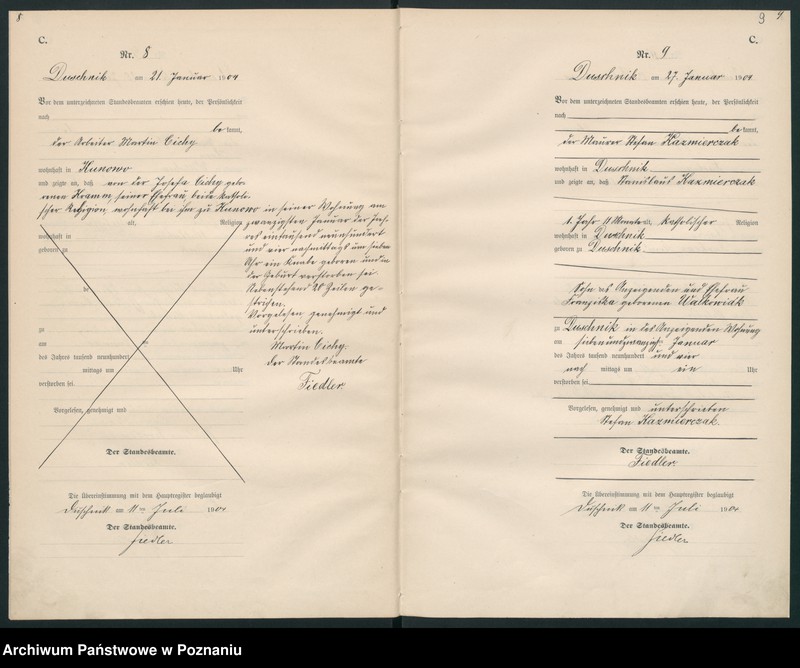 8
C.
Nr. 8
Duschnik am 21. Januar 1904
Vor dem unterzeichneten Standesbeamten erschien heute, der Persönlichkeit
nach
bekannt,
der Arbeiter Martin Cichy
wohnhaft in Kunowo
und zeigte an, daß von der Josefa Cichy gebo-
renen Kramm, seiner Ehefrau, beide katholi-
scher Religion, wohnhaft bei ihm zu Kunowo in seiner Wohnung am
zwanzigsten Januar des Jah-
res eintausend neunhundert
und vier nachmittags um sieben
Uhr ein Knabe geboren und in
der Geburt verstorben sei
Nebenstehend 20 Zeilen ge-
strichen.
Vorgelesen genehmigt und
unterschrieben.
Martin Cichy.
Der Standesbeamte
Fiedler
alt, Religion
wohnhaft in
geboren zu
de
zu
am ten
des Jahres tausend neunhundert
mittags um Uhr
verstorben sei.
Vorgelesen, genehmigt und
Der Standesbeamte.
Die Übereinstimmung mit dem Hauptregister beglaubigt
Duschnik am 11ten Juli 1904
Der Standesbeamte.
Fiedler
9
C.
Nr. 9
Duschnik am 27. Januar 1904
Vor dem unterzeichneten Standesbeamten erschien heute, der Persönlichkeit
nach
bekannt,
der Maurer Stefan Kazmierczak
wohnhaft in Duschnik
und zeigte an, daß Kazmierczak
1 Jahr 11 Monate alt, katholischer Religion
wohnhaft in Duschnik
geboren zu Duschnik.
Sohn des Anzeigenden und Ehefrau
Franziska geborenen
zu Duschnik in des Anzeigenden Wohnung
am siebenundzwanzigsten Januar
des Jahres tausend neunhundert und vier
nach mittags um ein Uhr
verstorben sei.
Vorgelesen, genehmigt und unterschrieben
Stefan Kazmierczak.
Der Standesbeamte.
Fiedler.
Die Übereinstimmung mit dem Hauptregister beglaubigt
Duschnik am 11ten Juli 1904
Der Standesbeamte.
Fiedler
Archiwum Państwowe w Poznaniu